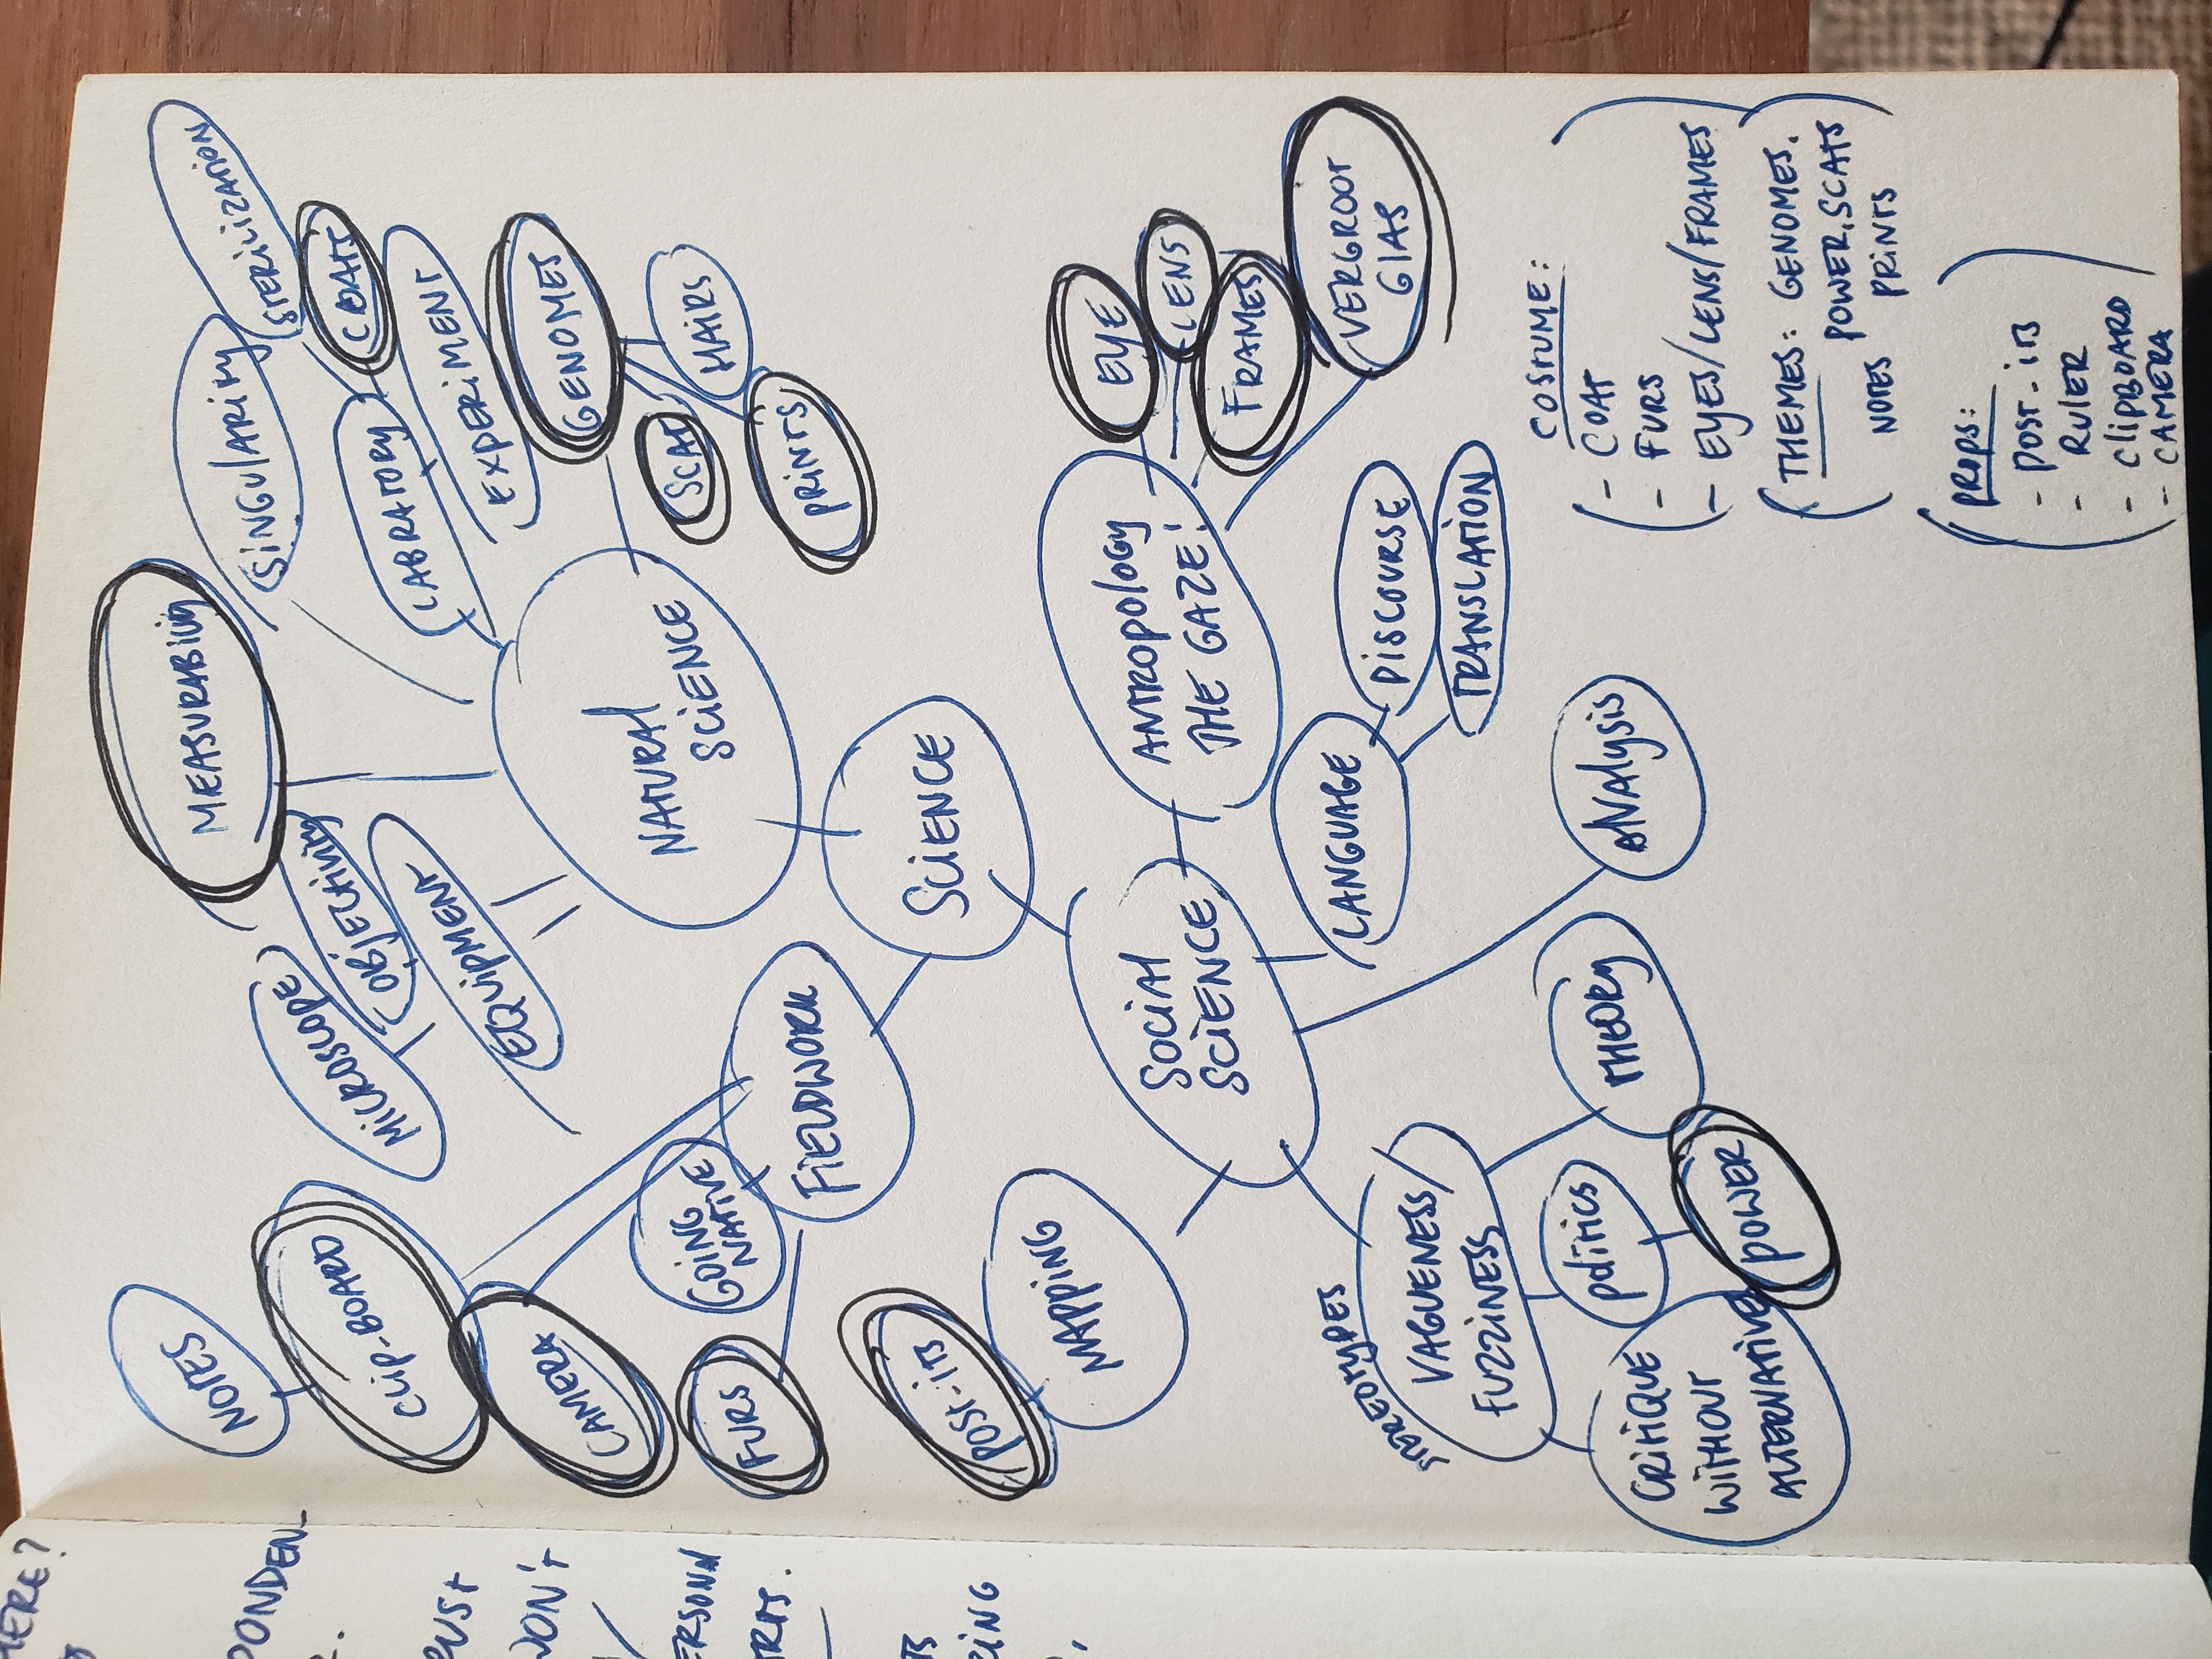 NOTES
CLIP-BOARD
CAMERA
FURS
GOING
NATIVE
FIELDWORK
POST-ITS
MAPPING
MICROSCOPE
OBJECTIVITY
EQUIPMENT
MEASURABILITY
SINGULARITY
STERILIZATION
COATS
LABRATORY
EXPERIMENT
GENOMES
HAIRS
SCAT
PRINTS
NATURAL
SCIENCE
SCIENCE
SOCIAL
SCIENCE
ANTROPOLOGY
THE GAZE!
EYE
LENS
FRAMES
VERGROOT
GLAS
LANGUAGE
DISCOURSE
TRANSLATION
ANALYSIS
THEORY
STEREOTYPES
VAGUENESS/
FUZZINESS
POLITICS
POWER
CRITIQUE
WITHOUT
ALTERNATIVE
COSTUME:
- COAT
- FURS
- EYES/LENS/FRAMES
THEMES: GENOMES.
POWER, SCATS
NOTES PRINTS
PROPS:
- POST-ITS
- RULER
- CLIPBOARD
- CAMERA
HERE?
WON'T